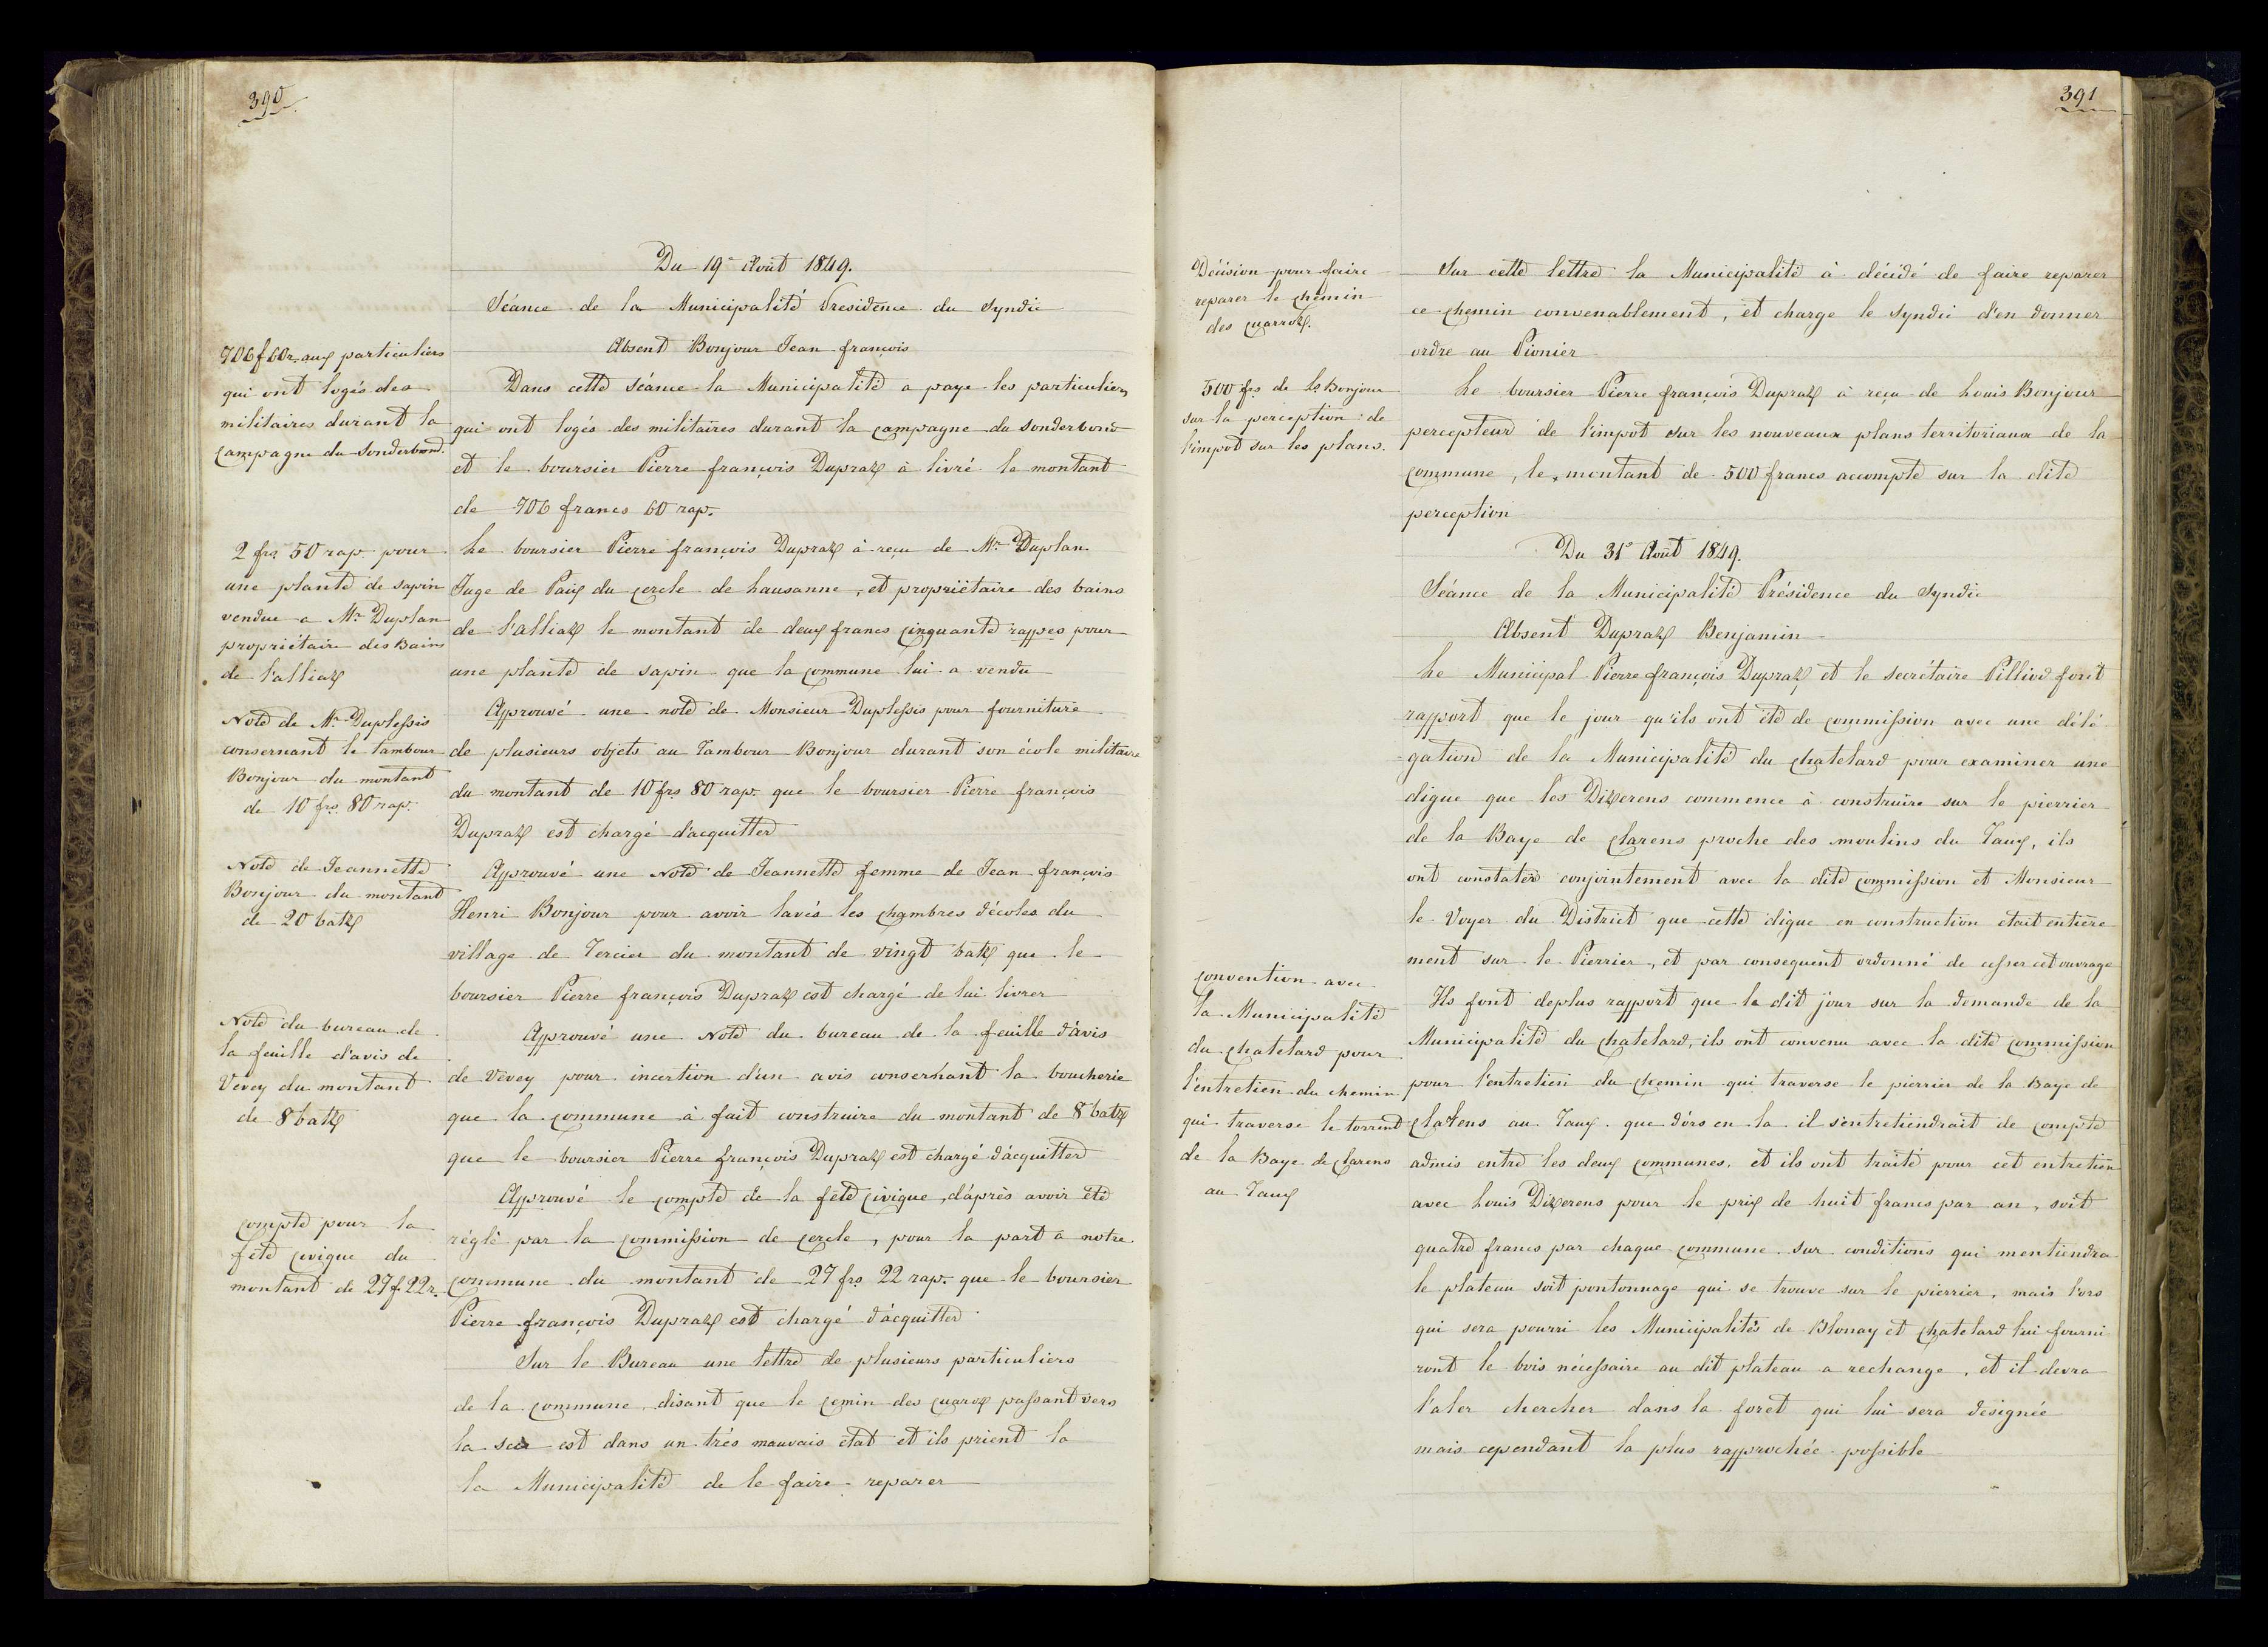 390
Du 19e Août 1849.
Séance de la Municipalité Presidence du Syndic
Absent Bonjour Jean françois
706 f 60 r. aux particuliers
qui ont logés des
militaires durant la
campagne du Sonderbond.
Dans cette séance la Municipalité a paye les particuliers
qui ont logés des militaires durant la campagne du sonderbond
et le boursier Pierre françois Dupraz à livré le montant
de 706 francs 60 rap.
2 frs 50 rap pour
une plante de sapin
vendue a Mr Duplan
propriétaire des Bains
de l'alliaz
Le boursier Pierre françois Dupraz à reçu de Mr Duplan
Juge de Paix du cercle de Lausanne, et propriètaire des bains
de l'Alliaz le montant de deux francs cinquante rappes pour
une plante de sapin que la commune lui a vendu
Note de Mr Duplessis
consernant le tambour
Bonjour du montant
de 10 frs 80 rap.
Approuvé une note de Monsieur Duplessis pour fourniture
de plusieurs objets au Tambour Bonjour durant son école militaire
du montant de 10 frs 80 rap. que le boursier Pierre françois
Dupraz est chargé d'acquitter
Note de Jeannette
Bonjour du montant
de 20 batz
Approuvé une Note de Jeannette femme de Jean françois
Henri Bonjour pour avoir lavés les chambres d'écoles du
village de Tercier du montant de vingt batz que le
boursier Pierre françois Dupraz est chargé de lui livrer
Note du bureau de
la feuille d'avis de
Vevey du montant
de 8 batz
Approuvé une Note du bureau de la feuille d'avis
de Vevey pour incertion d'un avis consernant la boucherie
que la commune à fait construire du montant de 8 batz
que le boursier Pierre françois Dupraz est chargé d'acquitter
compte pour la
fête civique du
montant de 27 f 22 r.
Approuvé le compte de la fête civique, d'après avoir été
réglé par la commission de cercle, pour la part a notre
commune du montant de 27 frs 22 rap. que le boursier
Pierre françois Dupraz est chargé d'acquitter
Sur le Bureau une lettre de plusieurs particuliers
de la commune, disant que le cemin des passant vers
la est dans un très mauvais état et ils prient la
la Municipalité de le faire reparer
391
Décision pour faire
reparer le chemin
des quarroz.
Sur cette lettre la Municipalité à décidé de faire reparer
ce chemin convenablement, et charge le Syndic d'en donner
ordre au Pionier
500 frs de Ls Bonjour
sur la perception de
l'impot sur les plans.
Le boursier Pierre françois Dupraz à reçu de Louis Bonjour
percepteur de l'impot sur les nouveaux plans territoriaux de la
commune, le montant de 500 francs accompte sur la dite
perception
Du 31e Août 1849.
Séance de la Municipalité Présidence du Syndic
Absent Dupraz Benjamin
Le Municipal Pierre françois Dupraz et le secrétaire Pilliod font
rapport que le jour qu'ils ont été de commission avec une délé
-gation de la Municipalité du chatelard pour examiner une
digue que les Dizerens commence à construire sur le pierrier
de la Baye de clarens proche des moulins du Taux, ils
ont constater conjointement avec la dite commission et Monsieur
le Voyer du District que cette digue en construction était entière
ment sur le Pierrier, et par consequent ordonné de cesser cet ouvrage
convention avec
la Municipalité
du chatelard pour
l'entretien du chemin
qui traverse le torrent
de la Baye de clarens
au Taux
Ils font deplus rapport que le dit jour sur la demande de la
Municipalité du chatelard, ils ont convenu avec la dite commission
pour l'entretien du chemin qui traverse le pierrier de la Baye de
clarens au Taux. que d'ors en la il s'entretiendrait de compte
admis entre les deux communes. et ils ont traité pour cet entretien
avec Louis Dizerens pour le prix de huit francs par an, soit
quatre francs par chaque commune. sur conditions qui mentiendra
le plateau soit pontonnage qui se trouve sur le pierrier, mais l'ors
qui sera pourri les Municipalités de Blonay et chatelard lui fourni
ront le bois nécessaire au dit plateau a rechange, et il devra
l'aler chercher dans la foret qui lui sera designée
mais cependant la plus rapprochée possible